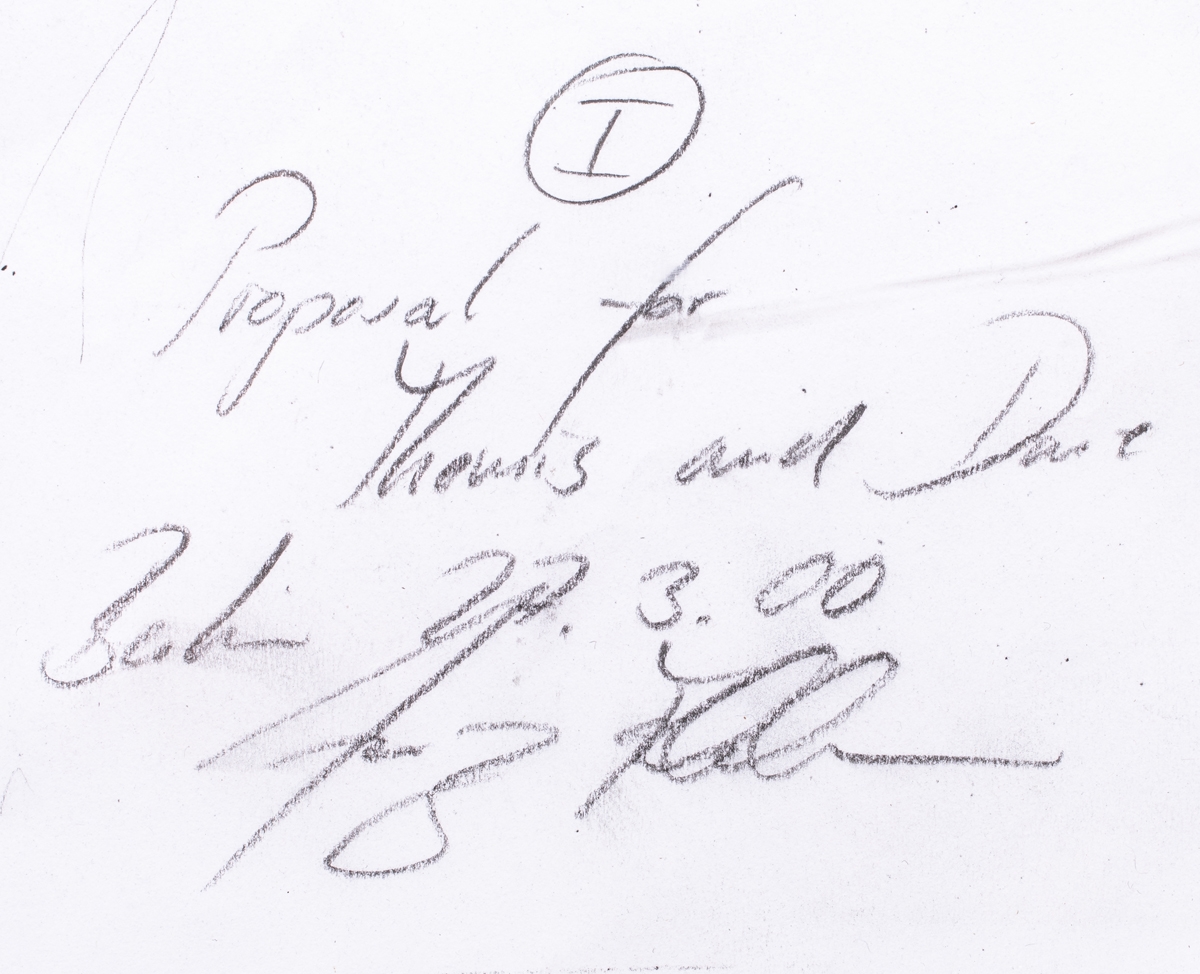 I
Proposal for
Thomas and Dave
Berlin 29. 3. 00